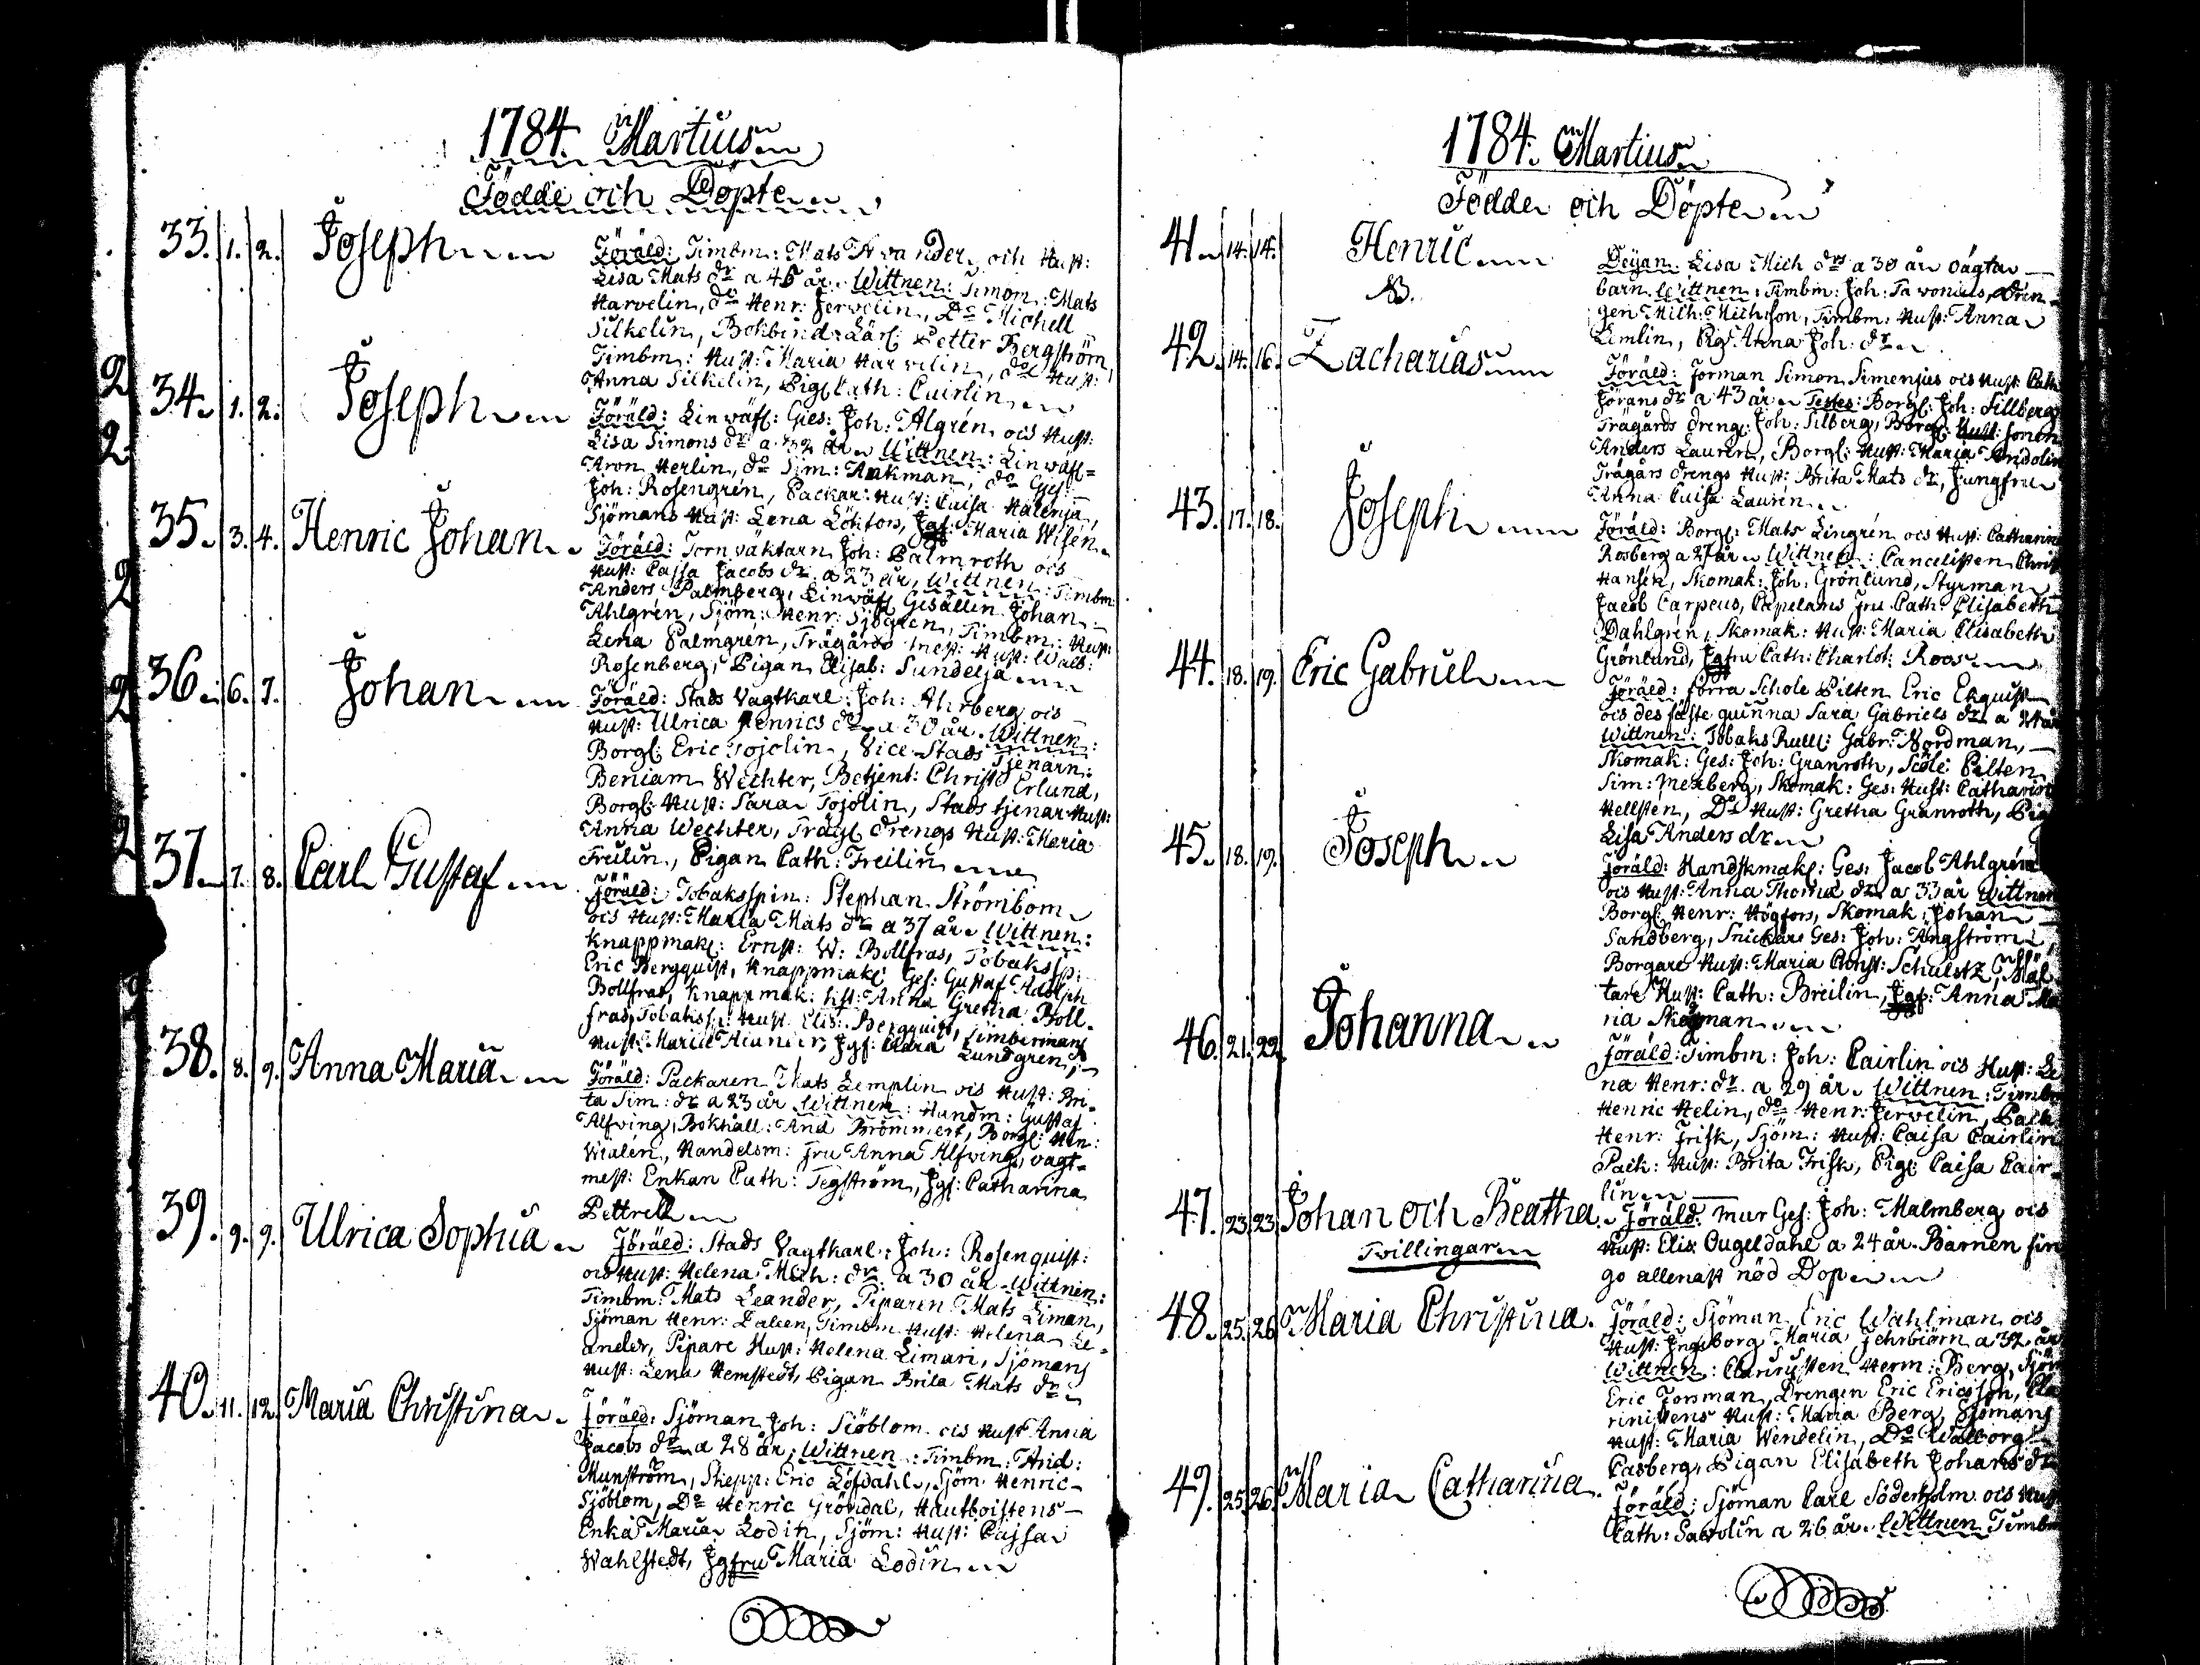 1784. Martius
Födde och Döpte
33. 1. 2. Joseph
Föräld: Timbm: Mats Arvander och Hust:
Lisa Mats dr a 45 år. Wittnen: Timbm: Mats
Harvelin, do Henr: Jervelin, Do Michell
Silkelin, Bokbind: Lärl: Petter Bergström,
Timbm: Hust: Maria Harvelin, do Hust:
Anna Silkelin, Pig: Cath: Cairlin
34. 1. 2. Joseph
Föräld: Linwäfv: Ges: Joh: Algrén, ocs Hust:
Lisa Simons dr a år Wittnen: Linwäfv=
Aron Herlin, do Sim: Aakman, do Ges:
Joh: Rosengrén, Packar: Hust: Caisa Halenja,
Sjömans Hust: Lena Löthfors, Jgf: Maria Wisén
35. 3. 4. Henric Johan
Föräld: Tornväktarn Joh: Palmroth ocs
Hust: Cajsa Jacobs dr. a 23 år, Wittnen: Timbm
Anders Palmberg, Linwäfv Gesällen Johan
Ahlgrén, Sjöm: Henr: Sjögren, Timbm: Hust:
Lena Palmgrén, Trägårds Hust: Walb:
Rosenberg, Pigan Elisab: Sundelja
36. 6. 7. Johan
Föräld: Stads Vagtkarl: Joh: Ahrberg ocs
Hust: Ulrica Henrics dr a 30 år. Wittnen:
Borgl: Eric Tojolin, Vice Stads Tjenarn:
Beniam Wechter, Betjent: Christ Erlund,
Borgl: Hust: Sara Tojolin, Stads tjenar Hust:
Anna Wechter, Trägl drengs Hust: Maria
Freilin, Pigan Cath: Freilin
37. 7. 8. Carl Gustaf
Föräld: Tobaksspin: Stephan Strömbom
ocs Hust: Maria Mats dr a 37 år. Wittnen:
Knappmak: Ernst: W: Bollfras, Tobakssp:
Eric Bergquist, Knappmak Ges: Gustaf Adolph
Bollfras, Knappmak: Anna Gretha Boll-
fras, Tobakssp: Hust Elis: Bergquist, Timbermans
Hust: Maria, Jgf: Clara Lundgren,
38. 8. 9. Anna Maria
Föräld: Packaren Mats Lemplin ocs Hust: Bri-
ta Sim: dr a 23 år Wittnen: Handm: Gustaf
Alfving, Bokhåll: And Brömmert, Borgl: Hen:
Wialén, Handelsm: Fru Anna Alfving, vagt-
mest: Enkan Cath: Tegström, Jgf: Catharina
Pettrell
39. 9. 9. Ulrica Sophia
Föräld: Stads Vagtkarl: Joh: Rosenquist:
ocs Hust: Helena Mich: dr: a 30 år. Wittnen:
Timbm: Mats Leander, Piparen Mats Liman,
Sjöman Henr: Dalien, Timbm Hust: Helena Le-
ander, Pipare Hust: Helena Liman, Sjömans
Hust: Lena Hemstedt, Pigan Brita Mats dr
40. 11. 12. Maria Christina
Föräld: Sjöman Joh: Siöblom ocs Hust Anna
Jacobs dr a 28 år; Wittnen: Timbm: And:
Munström, Skepp: Eric Löfdahl, Sjöm: Henric
Sjöblom, Do Henric Gröndal, Hautboistens
Enka Maria Lodin, Sjöm: Hust: Cajsa
Wahlstedt, Jgfru Maria Lodin
1784. Martius
Födde och Döpte
41. 14. 14. Henric
NB.
Deÿan Lisa Mich drs a 30 år oägta
barn. Wittnen: Timbm: Joh: Tavonius, Dren-
gen Mich: Michsson, Timbm: Hust: Anna
Limlin, Pig Anna Joh: dr
42. 14. 16. Zacharias
Föräld: Forman Simon Simenjus ocs Hust: Cath
Jörans dr a 43 år Testes: Borgl: Joh: Sillberg
Trägårds dreng: Joh: Silberg, Borgl: Hust: sonen
Anders Laurén, Borgl: Hust: Maria Andolin
Trägårs drengs Hust: Brita Mats dr, Jungfru
Anna Caisa Laurén
43. 17. 18. Joseph
Föräld: Borgl: Mats Lingrén ocs Hust: Catharin
Rosberg a 27 år Wittnen: Cancelisten Christ
Hansén, Skomak: Joh: Grönlund, Styrman
Jacob Carpeus, Capelans Fru Cath: Elisabeth
Dahlgrén, Skomak: Hust: Maria Elisabeth
Grönlund, Jgfru Cath: Charlot: Roos
44. 18. 19. Eric Gabriel
Föräld: förra Schole Pilten Eric Ekquist
ocs des fäste quinna Sara Gabriels dr a år
Wittnen: Tobaks Rull: Gabr: Nordman,
Skomak: Ges: Joh: Granroth, Scole Pilten
Sim: Menberg, Skomak: Ges: Hust: Catharin
Hellsten, Do Hust: Gretha Granroth, Pig
Lisa Anders dr
45. 18. 19. Joseph
Föräld: Handskmak: Ges: Jacob Ahlgrén
ocs Hust: Anna Thoma dr a 33 år Wittnen
Borgl: Henr: Högfors, Skomak: Johan
Sandberg, Snickare Ges: Joh: Ångström
Borgare Hust: Maria Const: Schulstz,
tare Hust: Cath: Breilin, Jgf: Anna Ma
ria Skogman
46. 21. 22. Johanna
Föräld: Timbm: Joh: Cairlin ocs Hust: Le
na Henr: dr. a 29 år. Wittnen: Timbm
Henric Helin, do Henr: Jervelin, Pack
Henr: Frisk, Sjöm: Hust: Caisa Cairlin
Pack: Hust: Brita Frisk, Pig: Caisa Cair-
lin
47. 23 23 Johan och Beatha
Tvillingar
Föräld: Mur Ges: Joh: Malmberg ocs
Hust: Elis Ougeldahl a 24 år. Barnen fin
go allenast nöd Dop
48. 25. 26 Maria Christina
Föräld: Sjöman Eric Wahlman ocs
Hust: Ingeborg Maria Jehrbiörn a 32 år
Wittnen: Clarinisten Herm: Berg, Sjöm
Eric Forsman, Drengen Eric Ericsson, Cla
rinistens Hust: Maria Berg, Sjömans
Hust: Maria Wendelin, Do Walborg
Casberg, Pigan Elisabeth Johans dr
49. 25. 26. Maria Catharina
Föräld: Sjöman Carl Söderholm ocs Hust
Cath: Savolin a 26 år. Wittnen Timbm